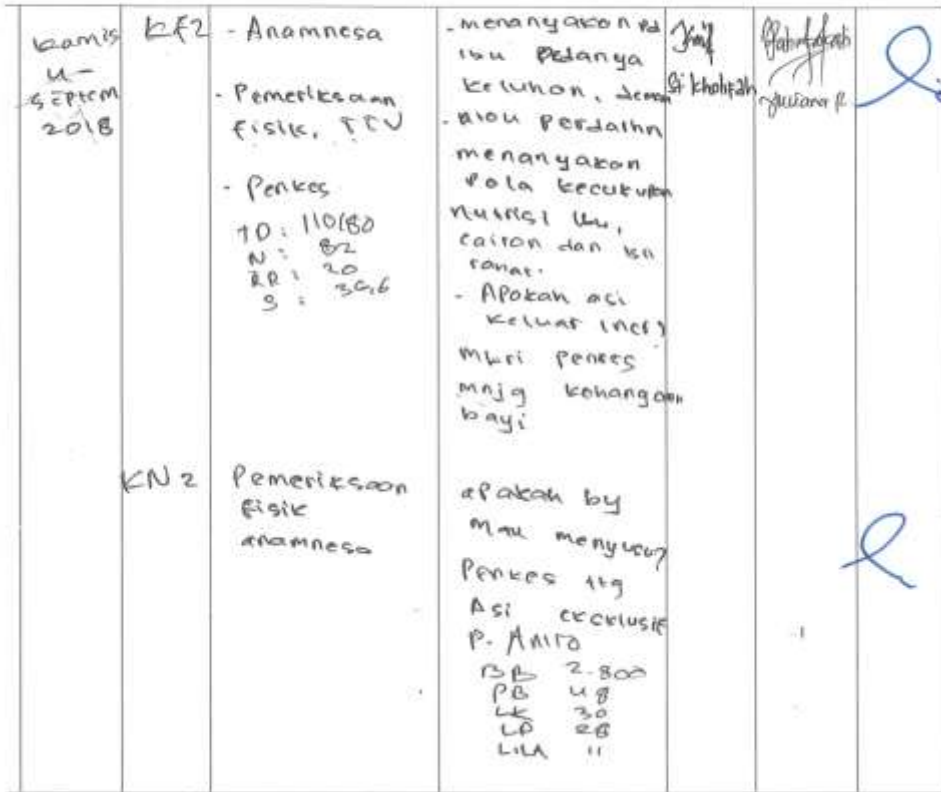 kamis
4-
septem
2018
KF2
- Anamnesa
- Pemeriksaan
fisik, TTV
- Penkes
TD : 110/80
N : 82
RR : 20
S : 36,6
- menanyakan pd
ibu adanya
keluhan, demam
- atau perdarhn
menanyakan
Pola kecukupan
nutrisi ibu,
cairan dan
- Apakah asi
keluar
mberi penkes
mnjg kehangaan
bayi
Si kholifah
Juliana R
KN 2
Pemeriksaan
fisik
anamnesa
apakah by
mau menyusu?
Penkes ttg
Asi eksklusif
P. Antro
BB 2.800
PB 48
LK 30
LD 28
LILA 11